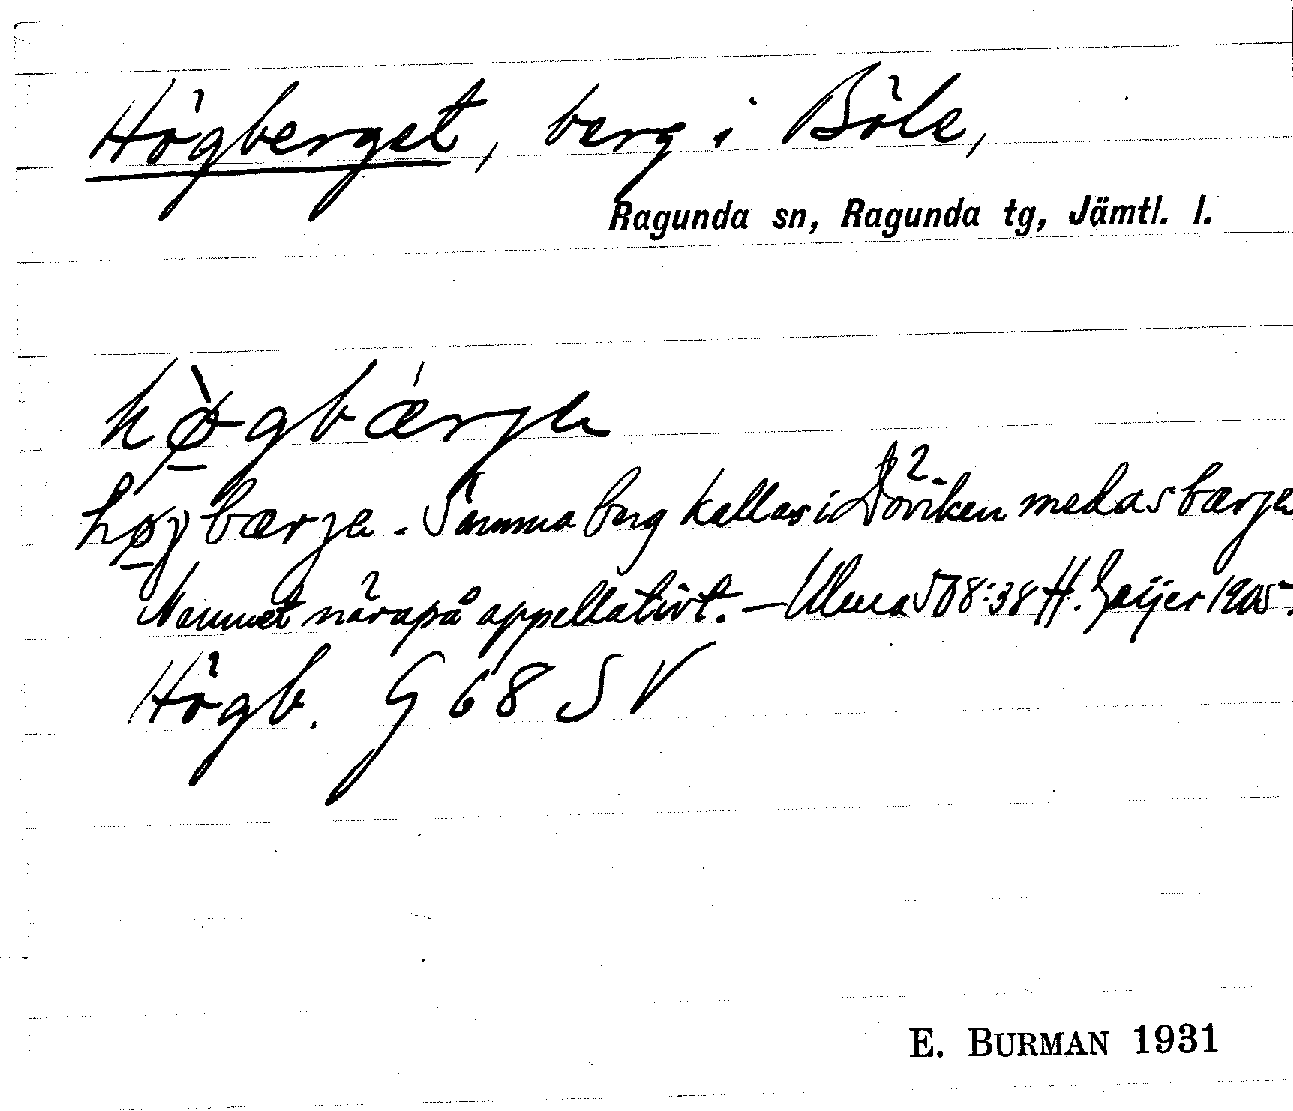 Högberget, berg i Böle,
Ragunda sn, Ragunda tg, Jämtl. l.
hø̀gbǽrje
høybærje. Samma berg kallas i Döviken medasbærje
Namnet närapå appellativt. – Ulma 508:38 H. Geijer 1905.
Högb. G 68 SV
E. BURMAN 1931